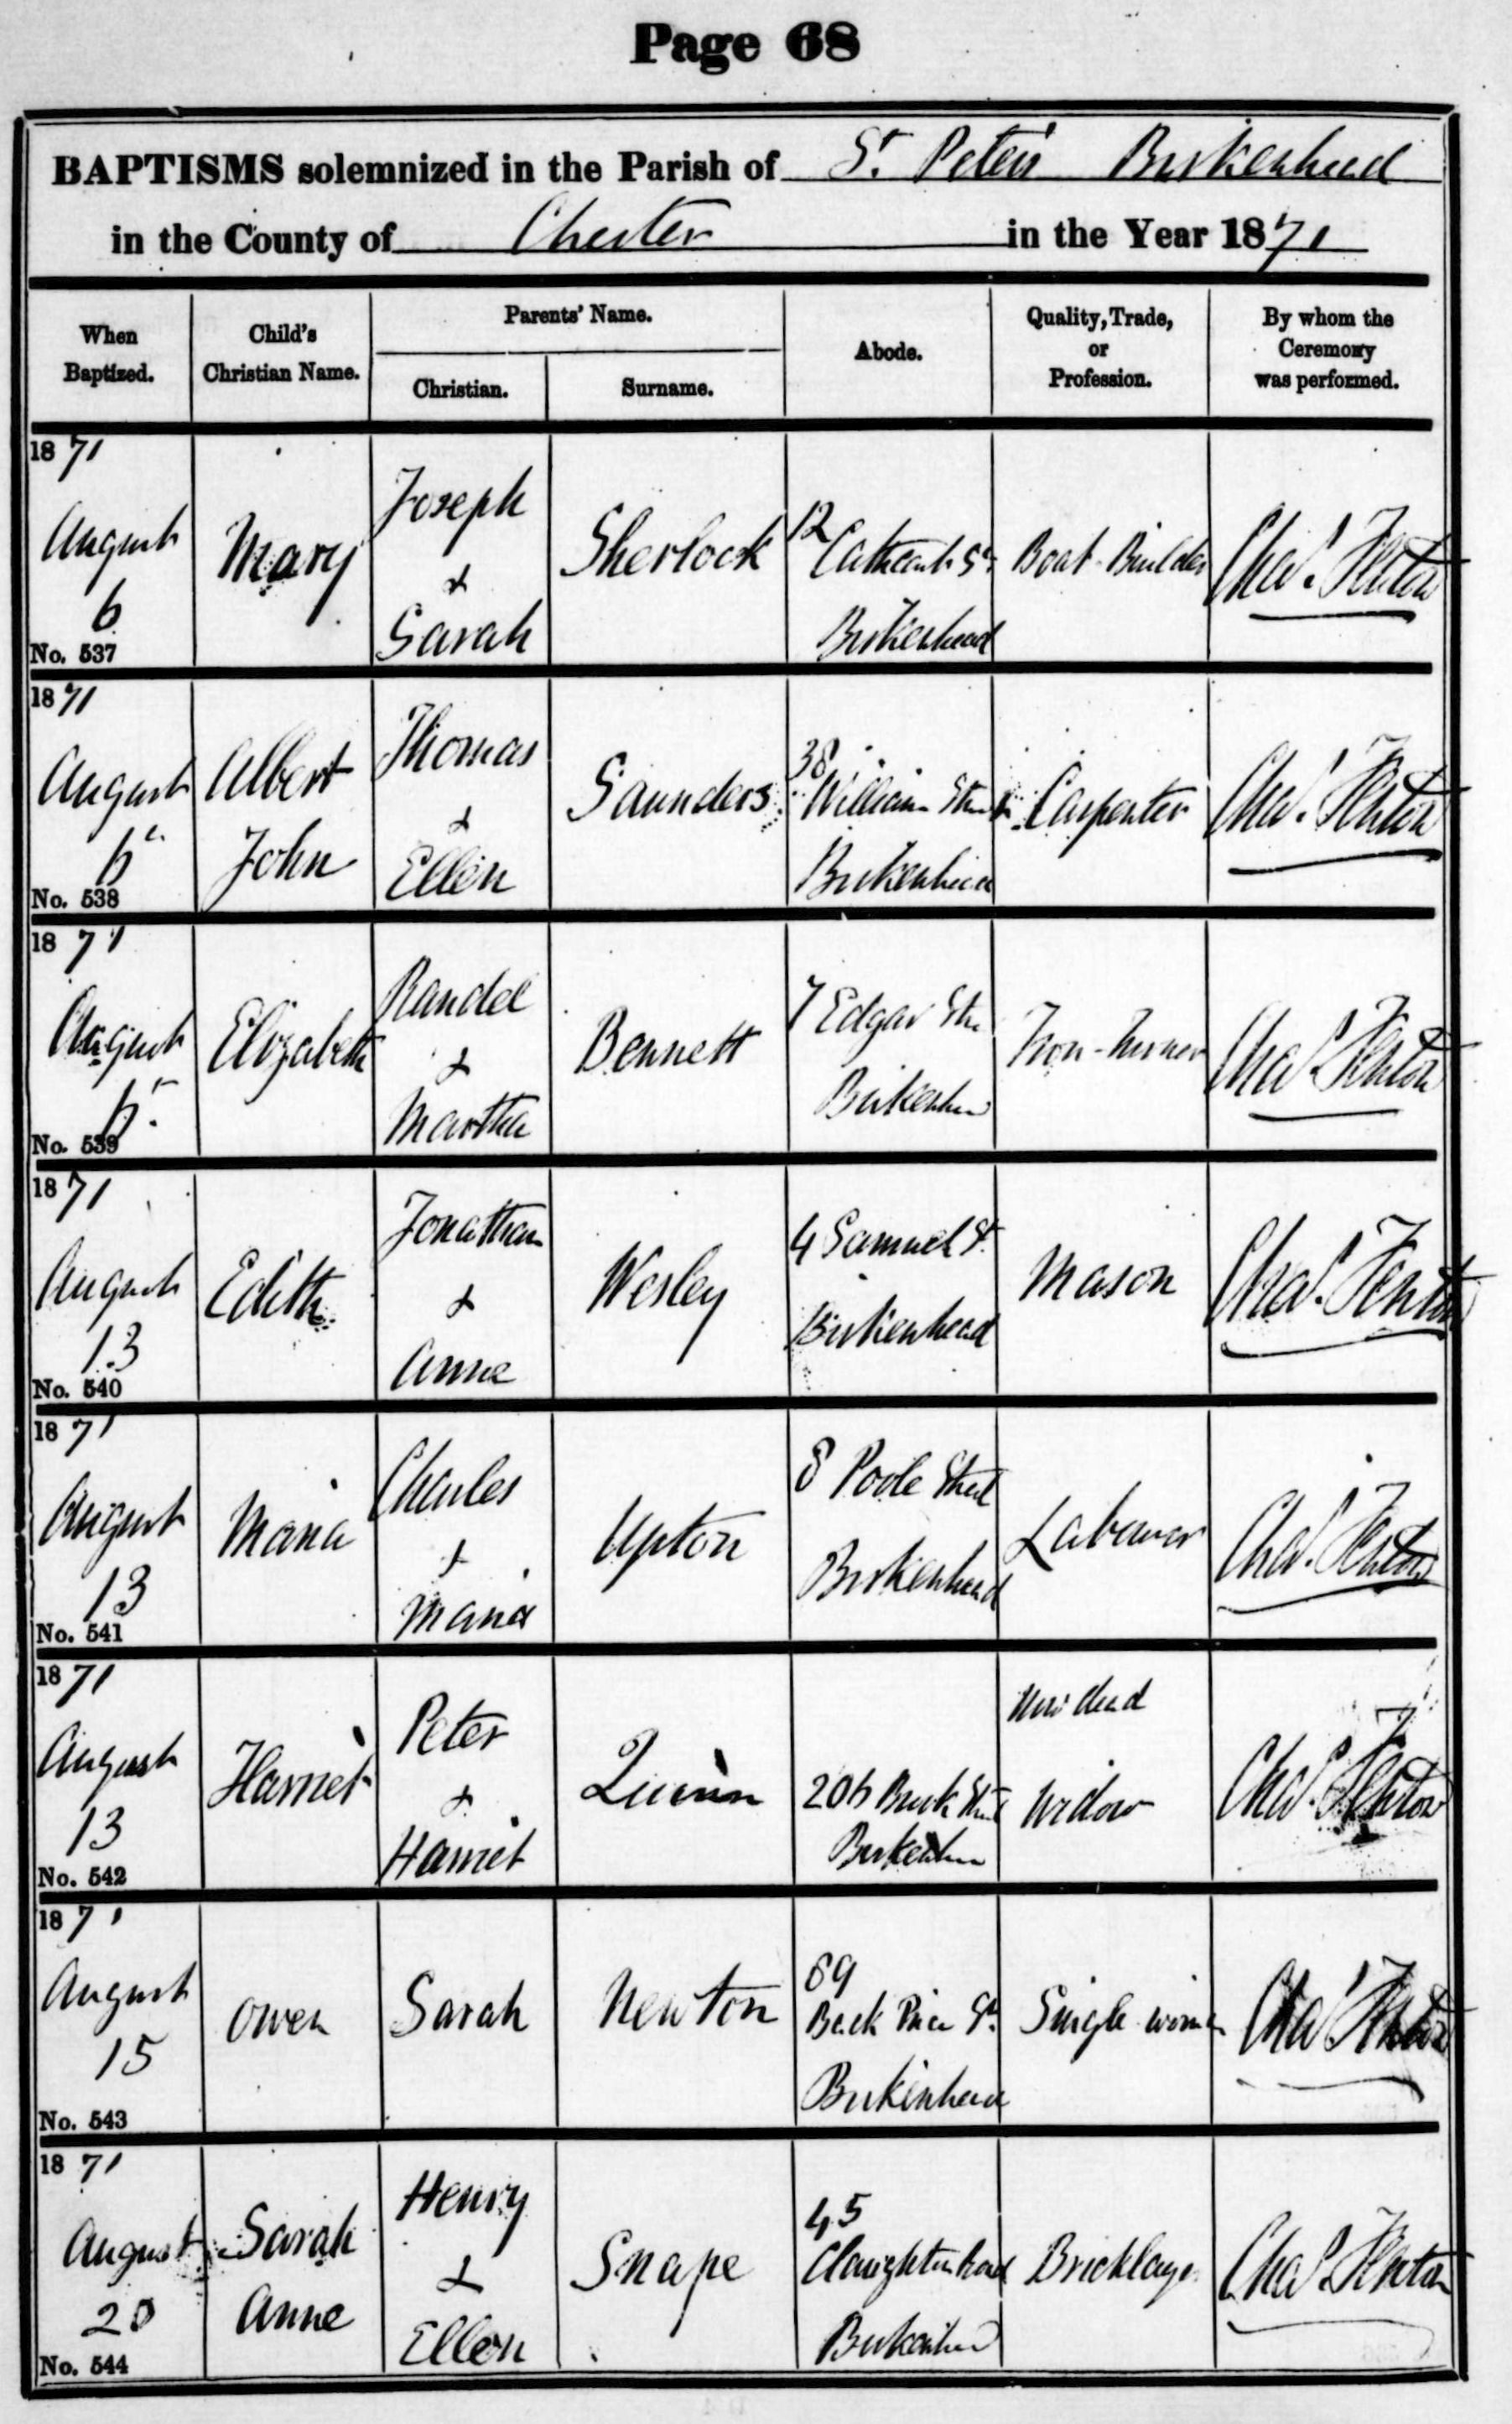 Page 68
BAPTISMS solemnized in the Parish of St. Peter's Birkenhead
in the County of Chester in the Year 1871
When Baptized.
Child's Christian Name.
Parents' Name.
Christian.
Surname.
Abode.
Quality, Trade, or Profession.
By whom the Ceremony was performed.
1871
August
6
No. 537
Mary
Joseph
&
Sarah
Sherlock
12
Cathcart St.
Birkenhead
Boat-Builder
Chas. Fenton
1871
August
6
No. 538
Albert
John
Thomas
&
Ellen
Saunders
38
William Street
Birkenhead
Carpenter
Chas. Fenton
1871
August
6
No. 539
Elizabeth
Randel
&
Martha
Bennett
7 Edgar Str
Birkenhead
Iron-turner
Chas. Fenton
1871
August
13
No. 540
Edith
Jonathan
&
Anne
Wesley
4 Samuel St.
Birkenhead
Mason
Chas. Fenton
1871
August
13
No. 541
Maria
Charles
&
Maria
Upton
8 Poole Street
Birkenhead
Labourer
Chas. Fenton
1871
August
13
No. 542
Harriet
Peter
&
Harriet
Quinn
206 Brook Street
Birkenhead
Now dead
Widow
Chas. Fenton
1871
August
15
No. 543
Owen
Sarah
Newton
69
Back Price St.
Birkenhead
Single woman
Chas. Fenton
1871
August
20
No. 544
Sarah
Anne
Henry
&
Ellen
Snape
45
Claughton Road
Birkenhead
Bricklayer
Chas. Fenton